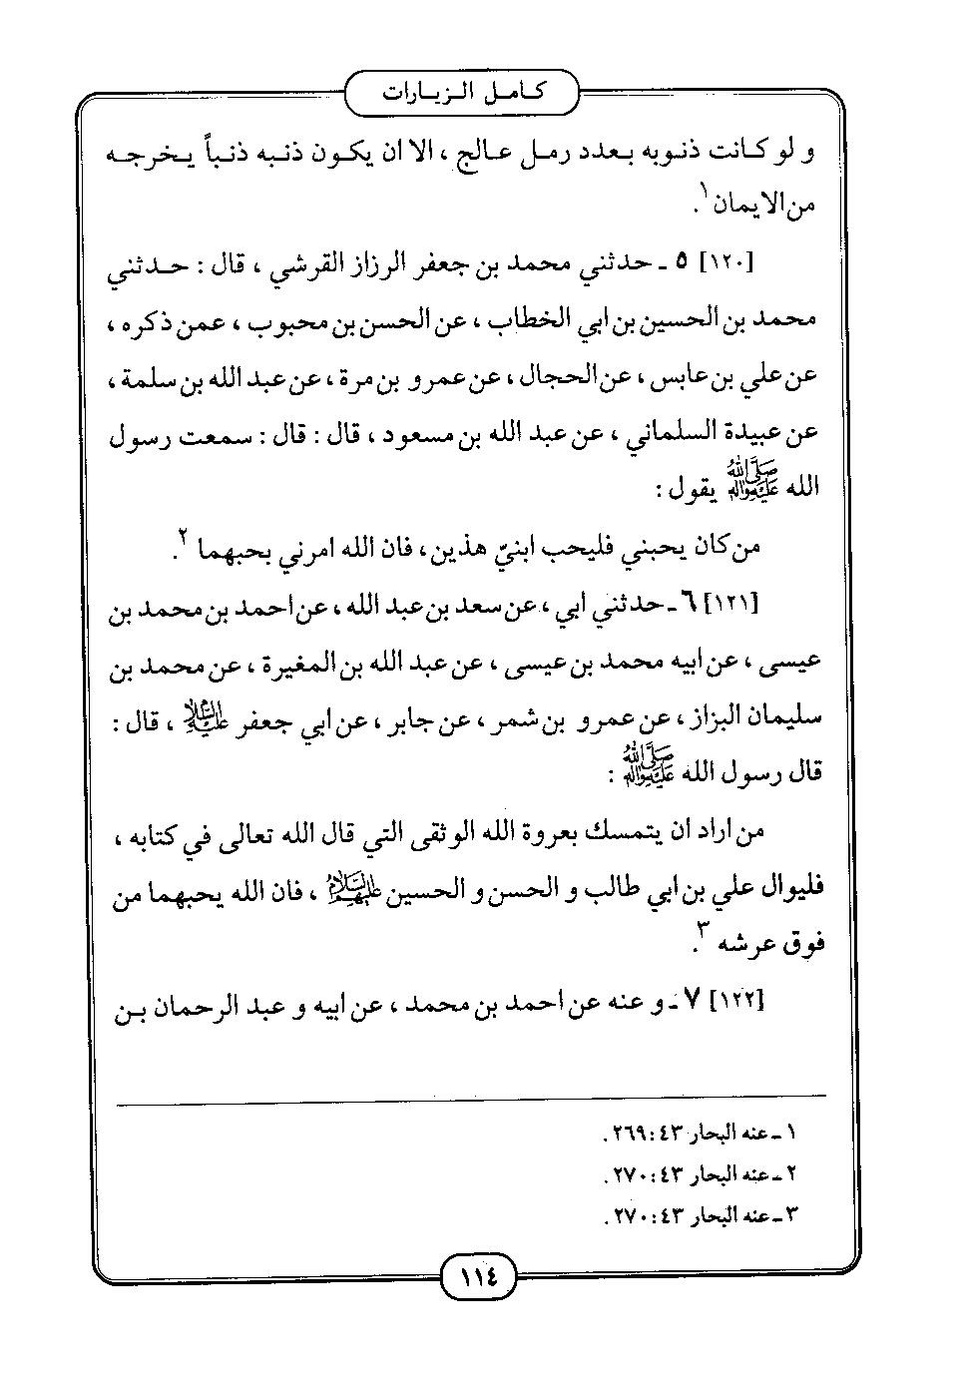 كامل الزيارات
و لو كانت ذنوبه بعدد رمل عالج ، الا ان يكون ذنبه ذنباً يخرجه
من الايمان ١.
[١٢٠] ٥ ـ حدثني محمد بن جعفر الرزاز القرشي ، قال : حدثني
محمد بن الحسين بن ابي الخطاب ، عن الحسن بن محبوب ، عمن ذكره ،
عن علي بن عابس ، عن الحجال ، عن عمرو بن مرة ، عن عبد الله بن سلمة ،
عن عبيدة السلماني ، عن عبد الله بن مسعود ، قال : قال : سمعت رسول
الله صلى الله عليه وآله يقول :
من كان يحبني فليحب ابنيّ هذين ، فان الله امرني بحبهما ٢.
[١٢١] ٦ ـ حدثني ابي ، عن سعد بن عبد الله ، عن احمد بن محمد بن
عيسى ، عن ابيه محمد بن عيسى ، عن عبد الله بن المغيرة ، عن محمد بن
سليمان البزاز ، عن عمرو بن شمر ، عن جابر ، عن ابي جعفر عليه السلام ، قال :
قال رسول الله صلى الله عليه وآله :
من اراد ان يتمسك بعروة الله الوثقى التي قال الله تعالى في كتابه ،
فليوال علي بن ابي طالب و الحسن و الحسين عليهم السلام ، فان الله يحبهما من
فوق عرشه ٣.
[١٢٢] ٧ ـ و عنه عن احمد بن محمد ، عن ابيه و عبد الرحمان بن
١ ـ عنه البحار ٤٣ : ٢٦٩.
٢ ـ عنه البحار ٤٣ : ٢٧٠.
٣ ـ عنه البحار ٤٣ : ٢٧٠.
١١٤